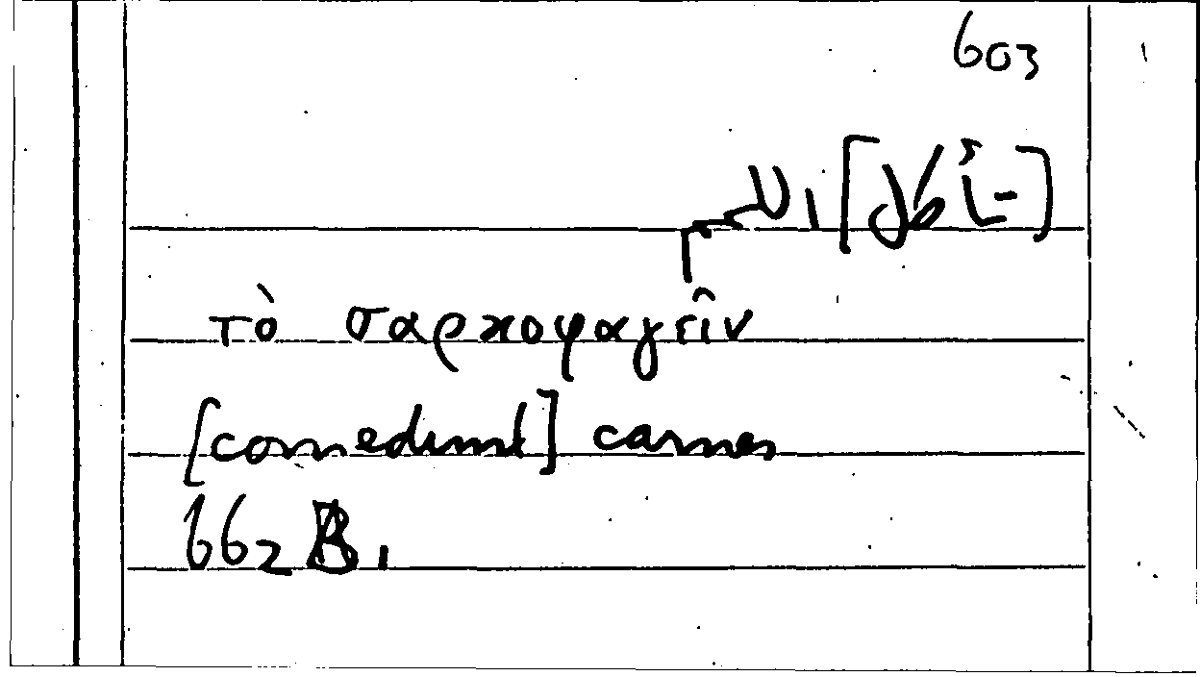 603
τὸ σαρκοφαγεῖν
[comedunt] carnes
662 B 1